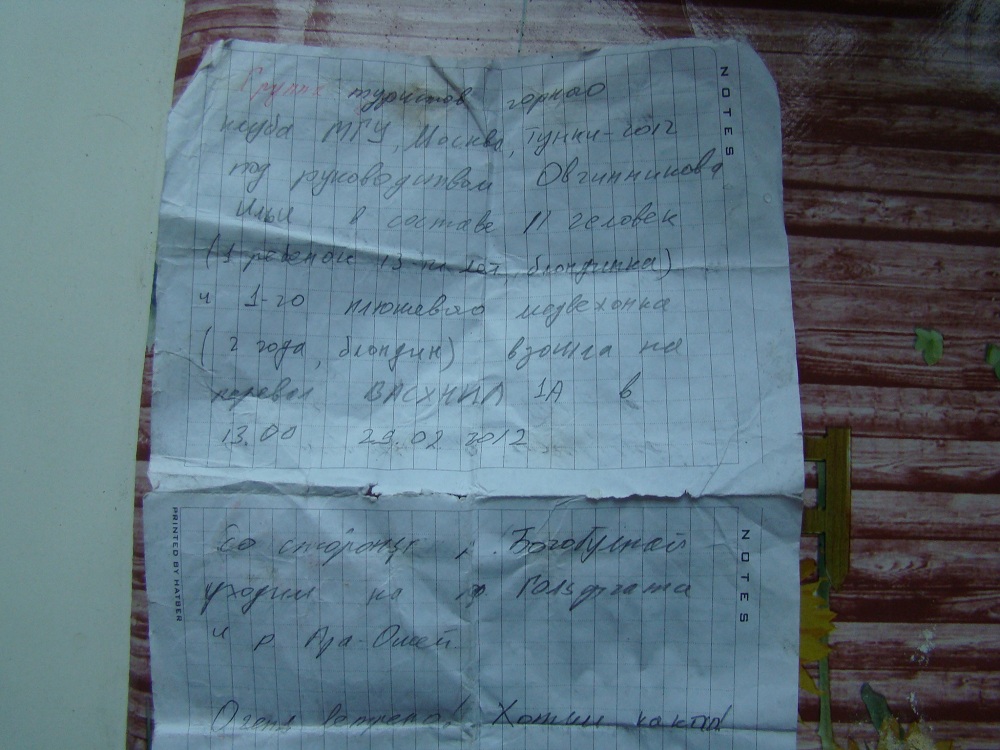 Группа туристов горного
клуба МГУ, Москва, Тунки-2012
под руководством Овчинникова
Ильи в составе 11 человек
(1 ребенок 13-ти лет, блондинка)
и 1-го плюшевого медвежонка
(2 года, блондин) взошла на
перевал ВАСХНИЛ 1А в
13.00 29.02 2012
NOTES
PRINTED BY HATBER
со стороны р.
уходим на
и р. Ара-Ошей.
NOTES
Очень ветрено! Хотим